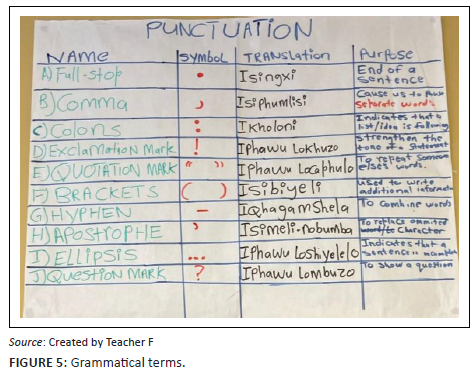 PUNCTUATION
NAME SYMBOL TRANSLATION Purpose
A) Full-stop . Isingxi End of a sentence
B) Comma , Isiphumlisi Cause us to pause separate words
C) Colons : Ikholoni Indicates that a list/idea is following
D) Exclamation Mark ! Iphawu Lokhuzo strengthen the tone of a statement
E) QUOTATION MARK " " Iphawu Locaphulo To repeat someone elses words.
F) BRACKETS ( ) Isibiyeli used to write additional
G) HYPHEN - IQhagamshela To combine words
H) APOSTROPHE ' Isimeli-nobumba To replace ommited character
I) ELLIPSIS ... Iphawu Loshiyelelo Indicates that a sentence
J) Question MARK ? Iphawu Lombuzo To show a question
Source: Created by Teacher F
FIGURE 5: Grammatical terms.